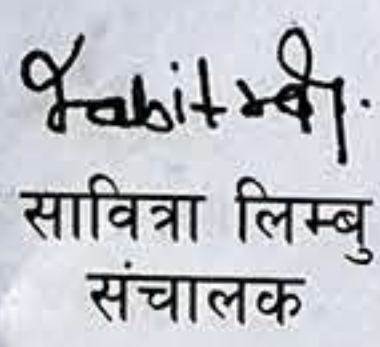 सावित्रा लिम्बु
संचालक